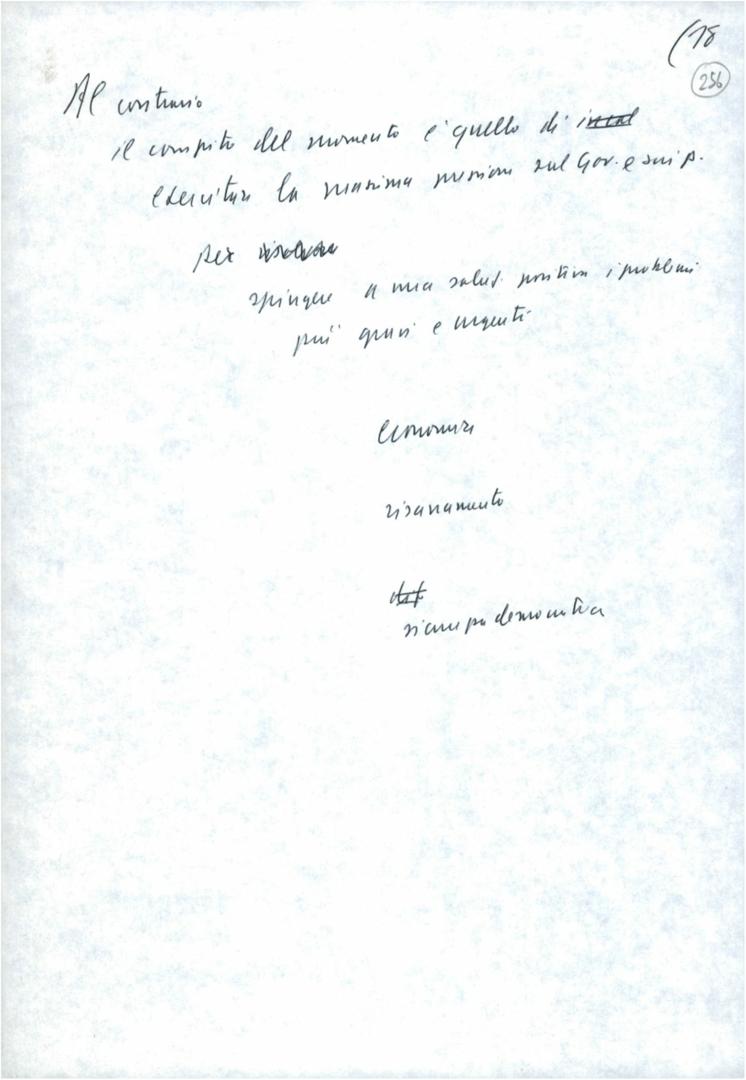 (18
256
Al contrario
il compito del momento è quello di
esercitare la massima pressione sul Gov. e sui p.
per risolvere
spingere a una soluz. positiva i problemi
più gravi e urgenti
economia
risanamento
democratica